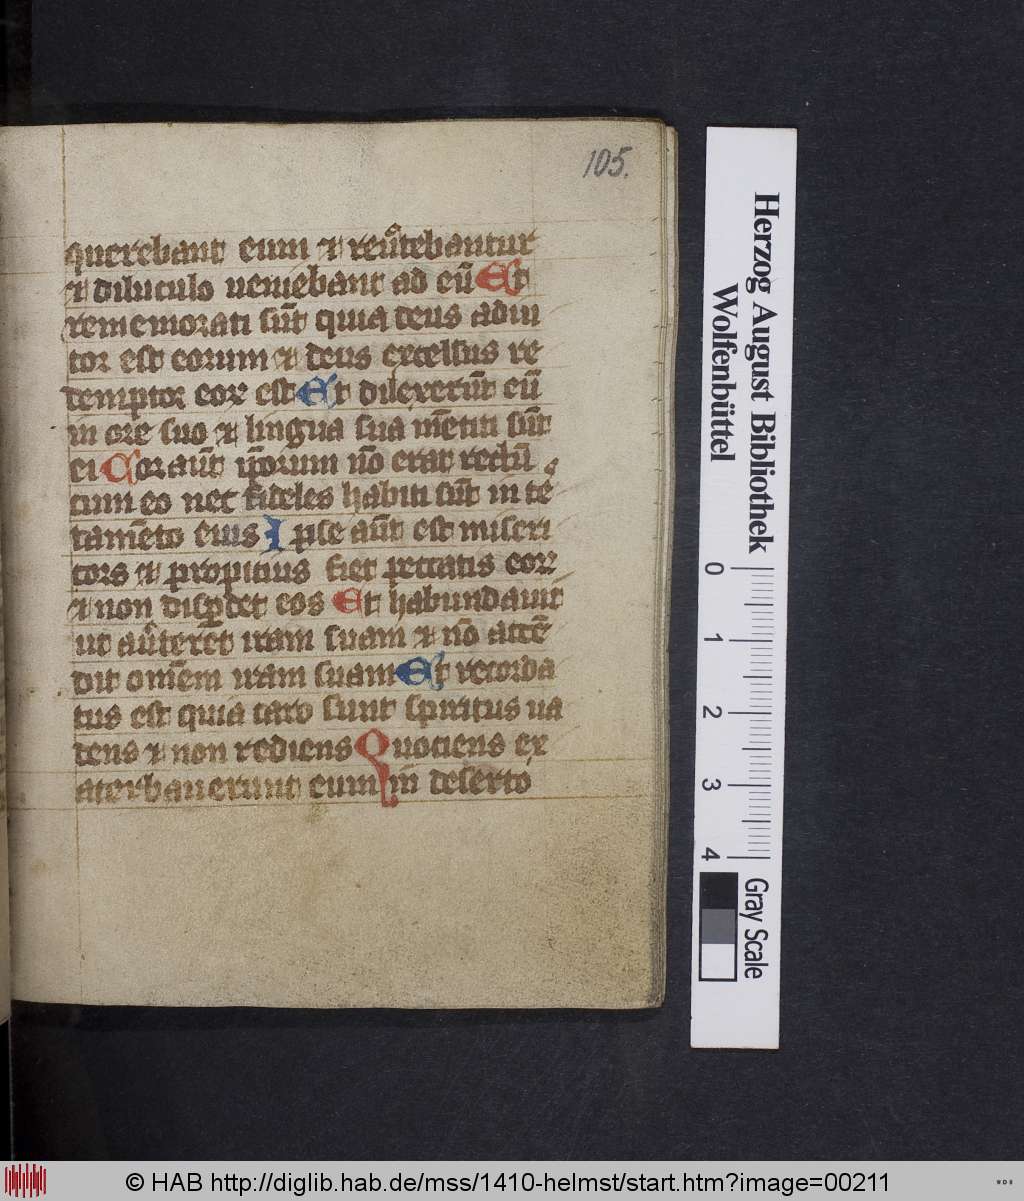 105.
querebant eum ⁊ reu͛tebantur
⁊ diluculo ueniebant ad eū Et
rememorati sūt quia deus adiu
tor est eorum ⁊ deus excelsus re
demptor eoꝝ est Et dilexerūt eū
in ore suo ⁊ lingua sua mētiti sūt
ei Cor aūt ip̄orum nō erat rectū
cum eo nec fideles habiti sūt in te
tamēto eius Ipse aūt est miseri
cors ⁊ propitius fiet peccatis eoꝝ
⁊ non disꝑdet eos Et habundauit
ut au͛teret iram suam ⁊ nō accē
dit omēm iram suam Et recorda
tus est quia caro sunt spiritus ua
dens ⁊ non rediens Quociens ex
acerbauerunt eum in deserto
Herzog August Bibliothek
Wolfenbüttel
0 1 2 3 4
Gray Scale
© HAB http://diglib.hab.de/mss/1410-helmst/start.htm?image=00211